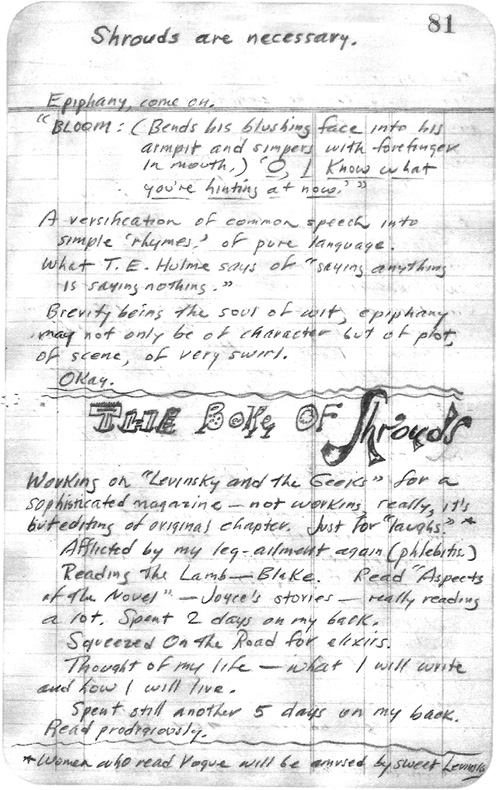 81
Shrouds are necessary.
Epiphany, come on.
"BLOOM: (Bends his blushing face into his
armpit and simpers with forefinger
in mouth.) 'O, I know what
you're hinting at now.'"
A versification of common speech into
simple 'rhymes,' of pure language.
What T. E. Hulme says of "saying anything
is saying nothing."
Brevity being the soul of wit, epiphany
may not only be of character but of plot,
of scene, of very swirl.
Okay.
THE Book OF Shrouds
Working on "Levinsky and the Geeks" for a
sophisticated magazine — not working, really, it's
but editing of original chapter. Just for "laughs." *
Afflicted by my leg-ailment again (phlebitis.)
Reading The Lamb — Blake. Read "Aspects
of the Novel" — Joyce's stories — really reading
a lot. Spent 2 days on my back.
Squeezed On the Road for elixirs.
Thought of my life — what I will write
and how I will live.
Spent still another 5 days on my back.
Read prodigiously.
*Women who read Vogue will be amused by sweet Levinsky